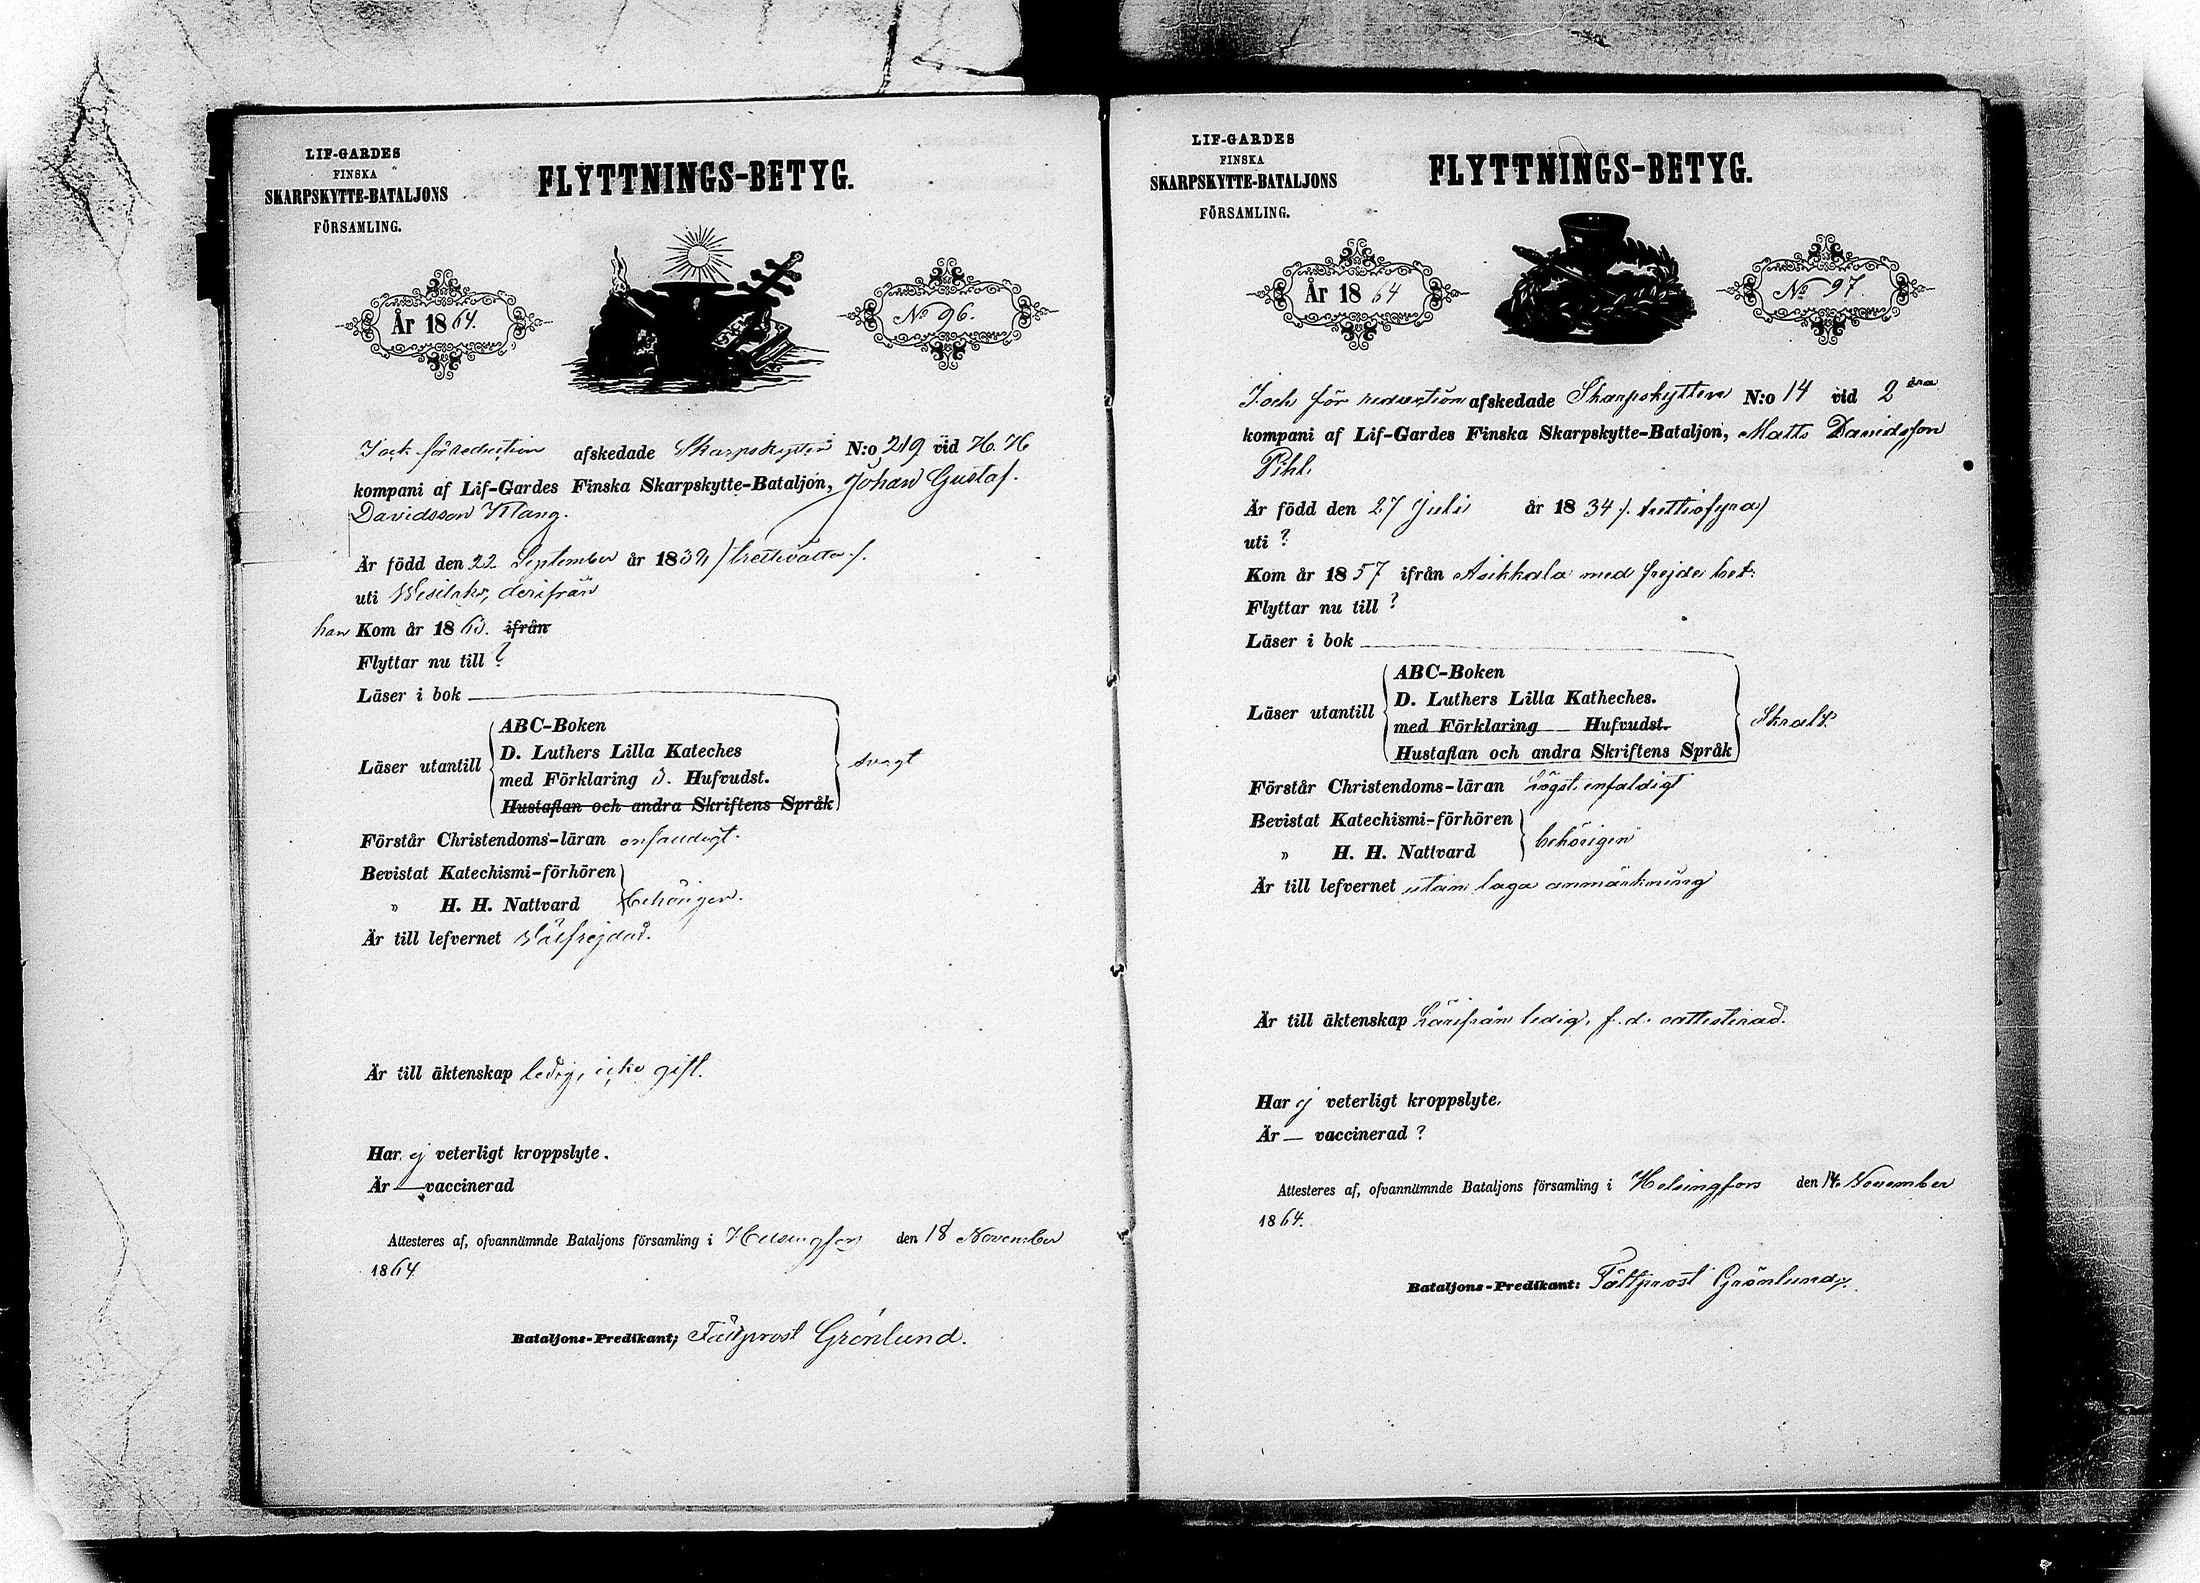 LIF-GARDES
FINSKA
SKARPSKYTTE-BATALJONS
FÖRSAMLING.
FLYTTNINGS-BETYG.
År 1864.
No 96.
I och för reduction afskedade Skarpskytten N:o 219 vid H. H
kompani af Lif-Gardes Finska Skarpskytte-Bataljon, Johan Gustaf
Davidsson Klang.
Är född den 22 September år 1838 /trettioåtta/.
uti Wesilaks, derifrån
han Kom år 1860. ifrån
Flyttar nu till ?
Läser i bok
Läser utantill
ABC-Boken
D. Luthers Lilla Kateches
med Förklaring 3. Hufvudst.
Hustaflan och andra Skriftens Språk
svagt
Förstår Christendoms-läran enfaldigt.
Bevistat Katechismi-förhören
" H. H. Nattvard
behörigen.
Är till lefvernet Välfrejdad.
Är till äktenskap ledig, icke gift.
Har ej veterligt kroppslyte.
Är — vaccinerad
Attesteres af, ofvannämnde Bataljons församling i Helsingfors den 18 November
1864
Bataljons-Predikant; Fältprost Grönlund.
LIF-GARDES
FINSKA
SKARPSKYTTE-BATALJONS
FÖRSAMLING.
FLYTTNINGS-BETYG.
År 1864
No 97.
I och för reduction afskedade Skarpskytten N:o 14 vid 2 dra
kompani af Lif-Gardes Finska Skarpskytte-Bataljon, Matts Davidsson
Pihl.
Är född den 27 Juli år 1834 /. trettiofyra/
uti ?
Kom år 1857 ifrån Asikkala med frejde bet.
Flyttar nu till ?
Läser i bok
Läser utantill
ABC-Boken
D. Luthers Lilla Katheches.
med Förklaring Hufvudst.
Hustaflan och andra Skriftens Språk
Skralt.
Förstår Christendoms-läran högst enfaldigt
Bevistat Katechismi-förhören
" H. H. Nattvard
behörigen
Är till lefvernet utan laga anmärkning
Är till äktenskap härifrån ledig, f. d. attesterad.
Har ej veterligt kroppslyte.
Är — vaccinerad ?
Attesteres af, ofvannämnde Bataljons församling i Helsingfors den 14 November
1864.
Bataljons-Predikant: Fältprost Grönlund